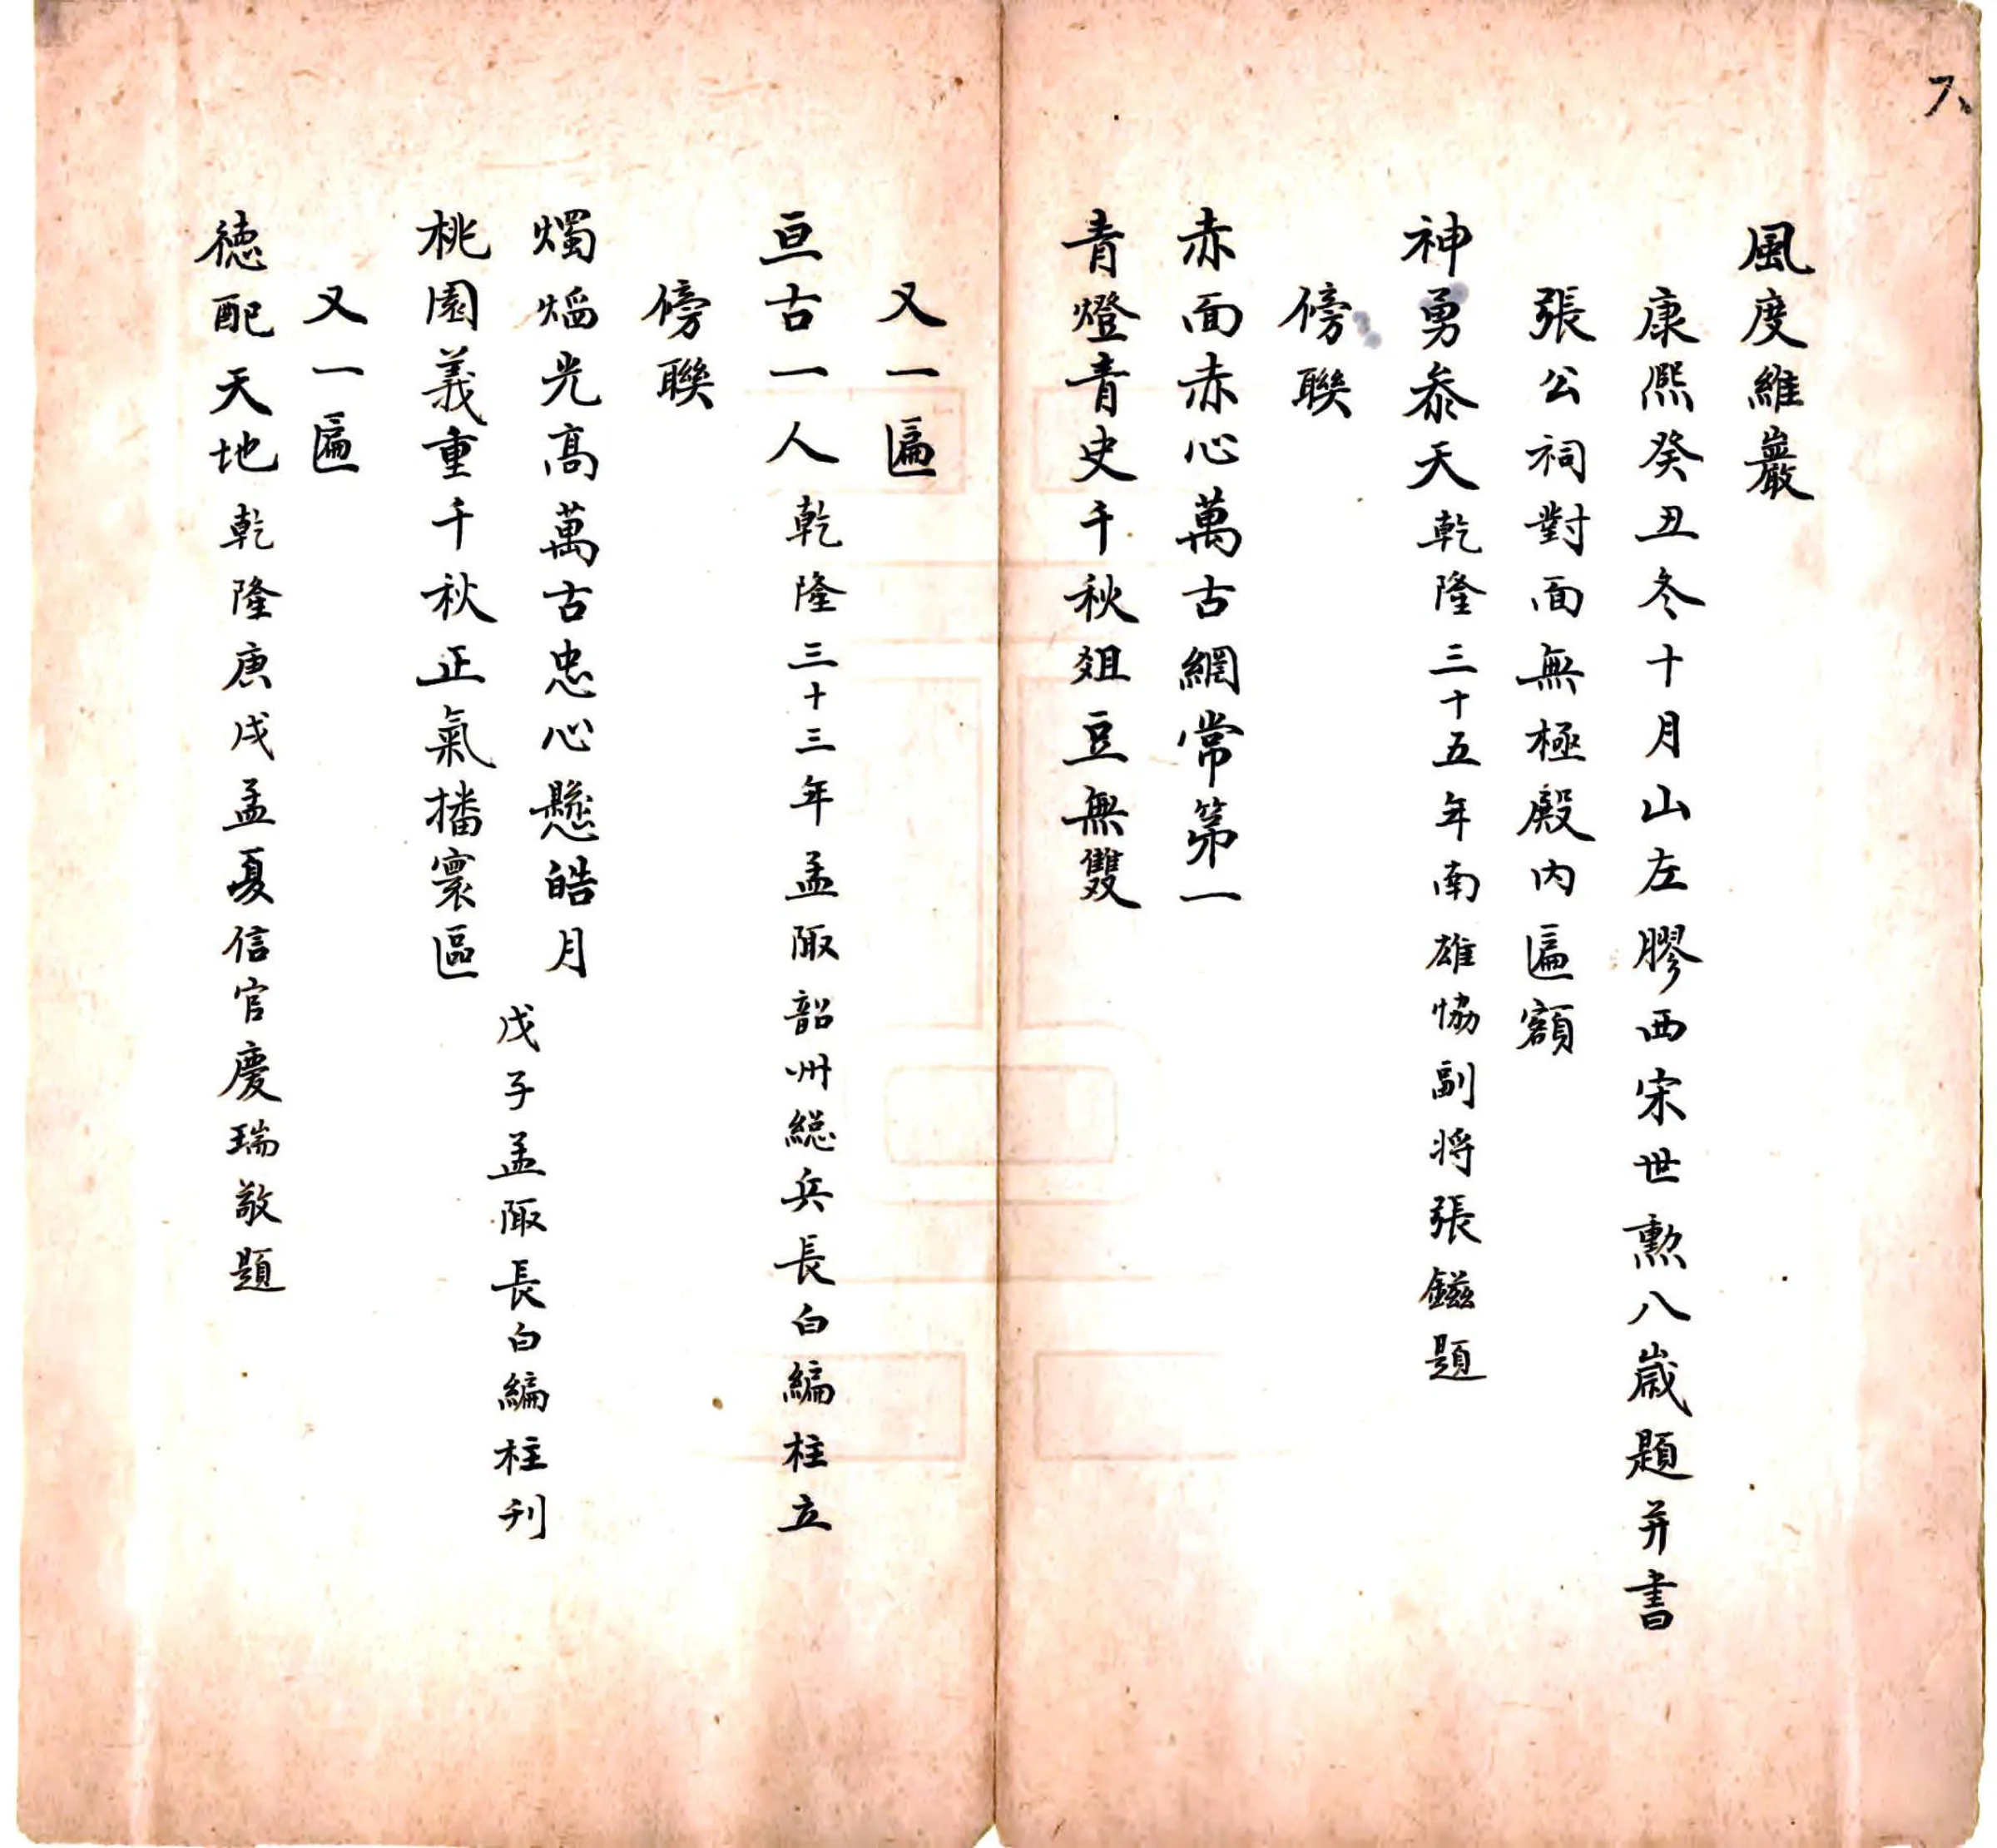 六
風度維巖
康熈癸丑冬十月山左膠西宋世勲八歲題并書
張公祠對面無極殿內匾額
神勇叅天乾隆三十五年南雄恊副将張鎡題
傍聯
赤面赤心萬古綱常第一
青燈青史千秋俎豆無雙
又一匾
亘古一人乾隆三十三年孟陬韶州總兵長白編柱立
傍聯
燭熖光高萬古忠心懸皓月
桃園義重千秋正氣播寰區
戊子孟陬長白編柱刊
又一匾
德配天地乾隆庚戌孟夏信官慶瑞敬題